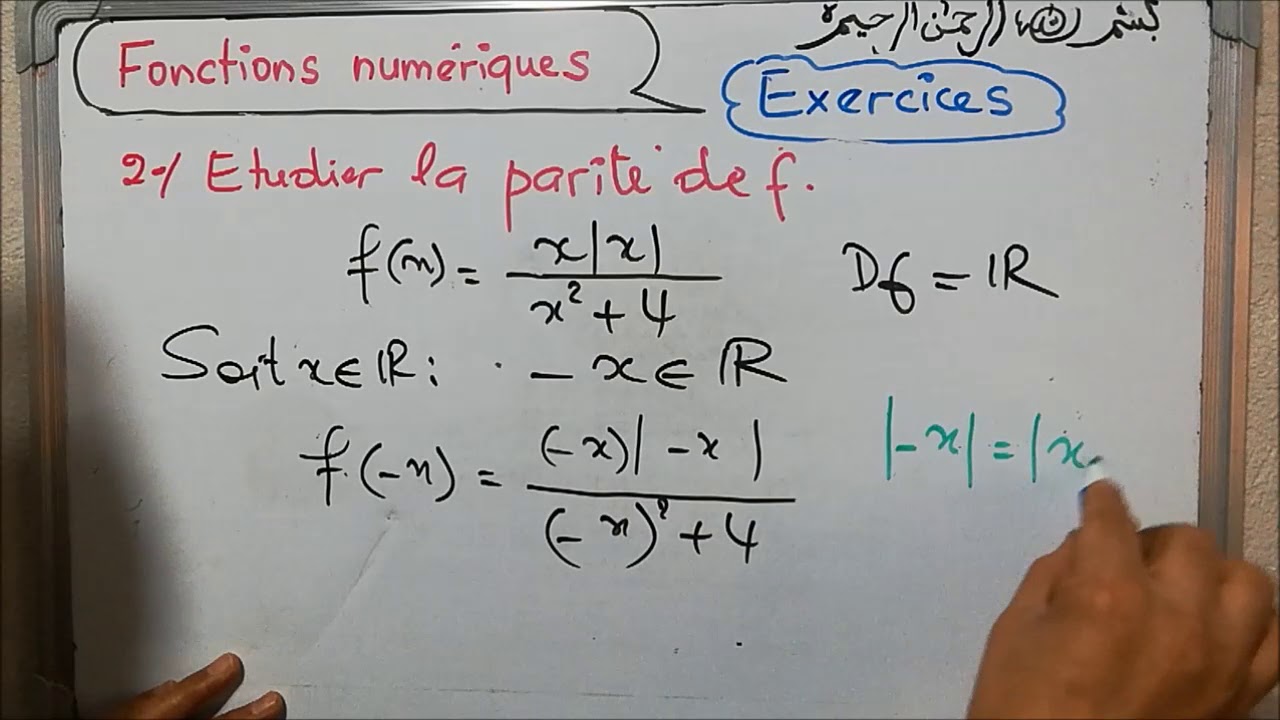 بسم الله الرحمن الرحيم
Fonctions numériques
Exercices
2-/ Etudier la parité de f.
f(x) = x|x| / x² + 4
Df = ℝ
Soit x ∈ ℝ : · - x ∈ ℝ
f(-x) = (-x)|-x| / (-x)² + 4
|-x| = |x